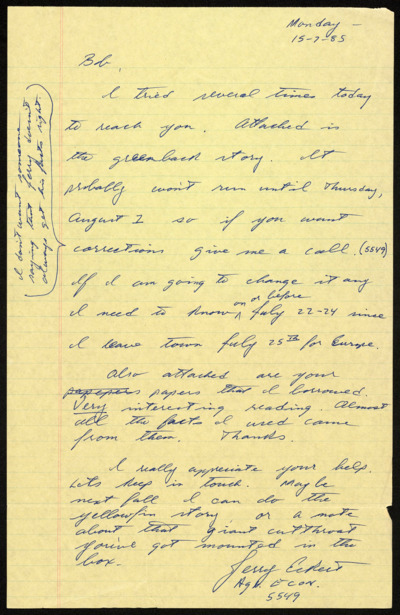 Monday -
15-7-85
Bob,
I tried several times today
to reach you. Attached is
the greenback story. It
probably won't run until Thursday,
August 1 so if you want
corrections give me a call. (5549)
If I am going to change it any
I need to know on or before July 22-24 since
I leave town July 25th for Europe.
Also attached are your
papers that I borrowed.
Very interesting reading. Almost
all the facts I used came
from them. Thanks.
I really appreciate your help.
Lets keep in touch. Maybe
next fall I can do the
yellowfin story or a note
about that giant cutthroat
you've got mounted in the
box.
Jerry Eckert
Ag. Econ.
5549
I don't want someone
saying that Jerry doesn't
always get his facts right.